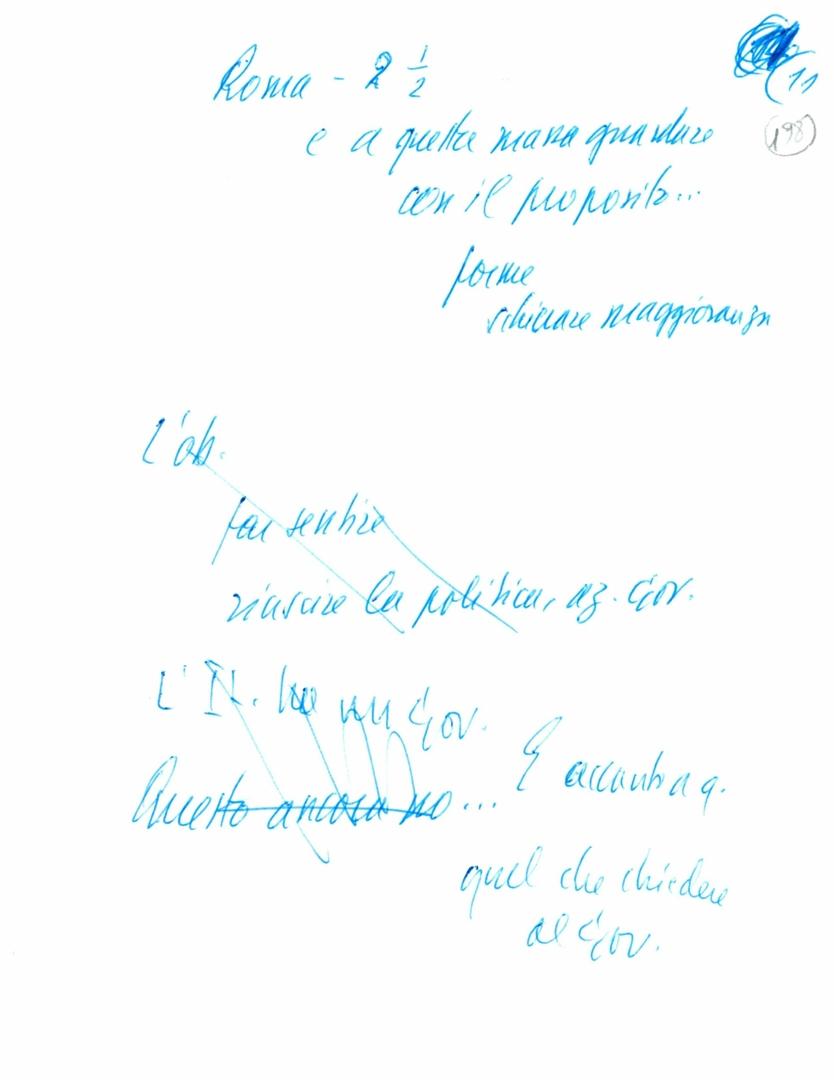 (11
198
Roma - 2 1/2
e a questa massa guardare
con il proposito...
forme
schierare maggioranza
L'ob.
far sentire
riuscire la politica, az. Gov.
L'It. ha un Gov.
Questo ancora no...
E accanto a q.
quel che chiedere
al Gov.